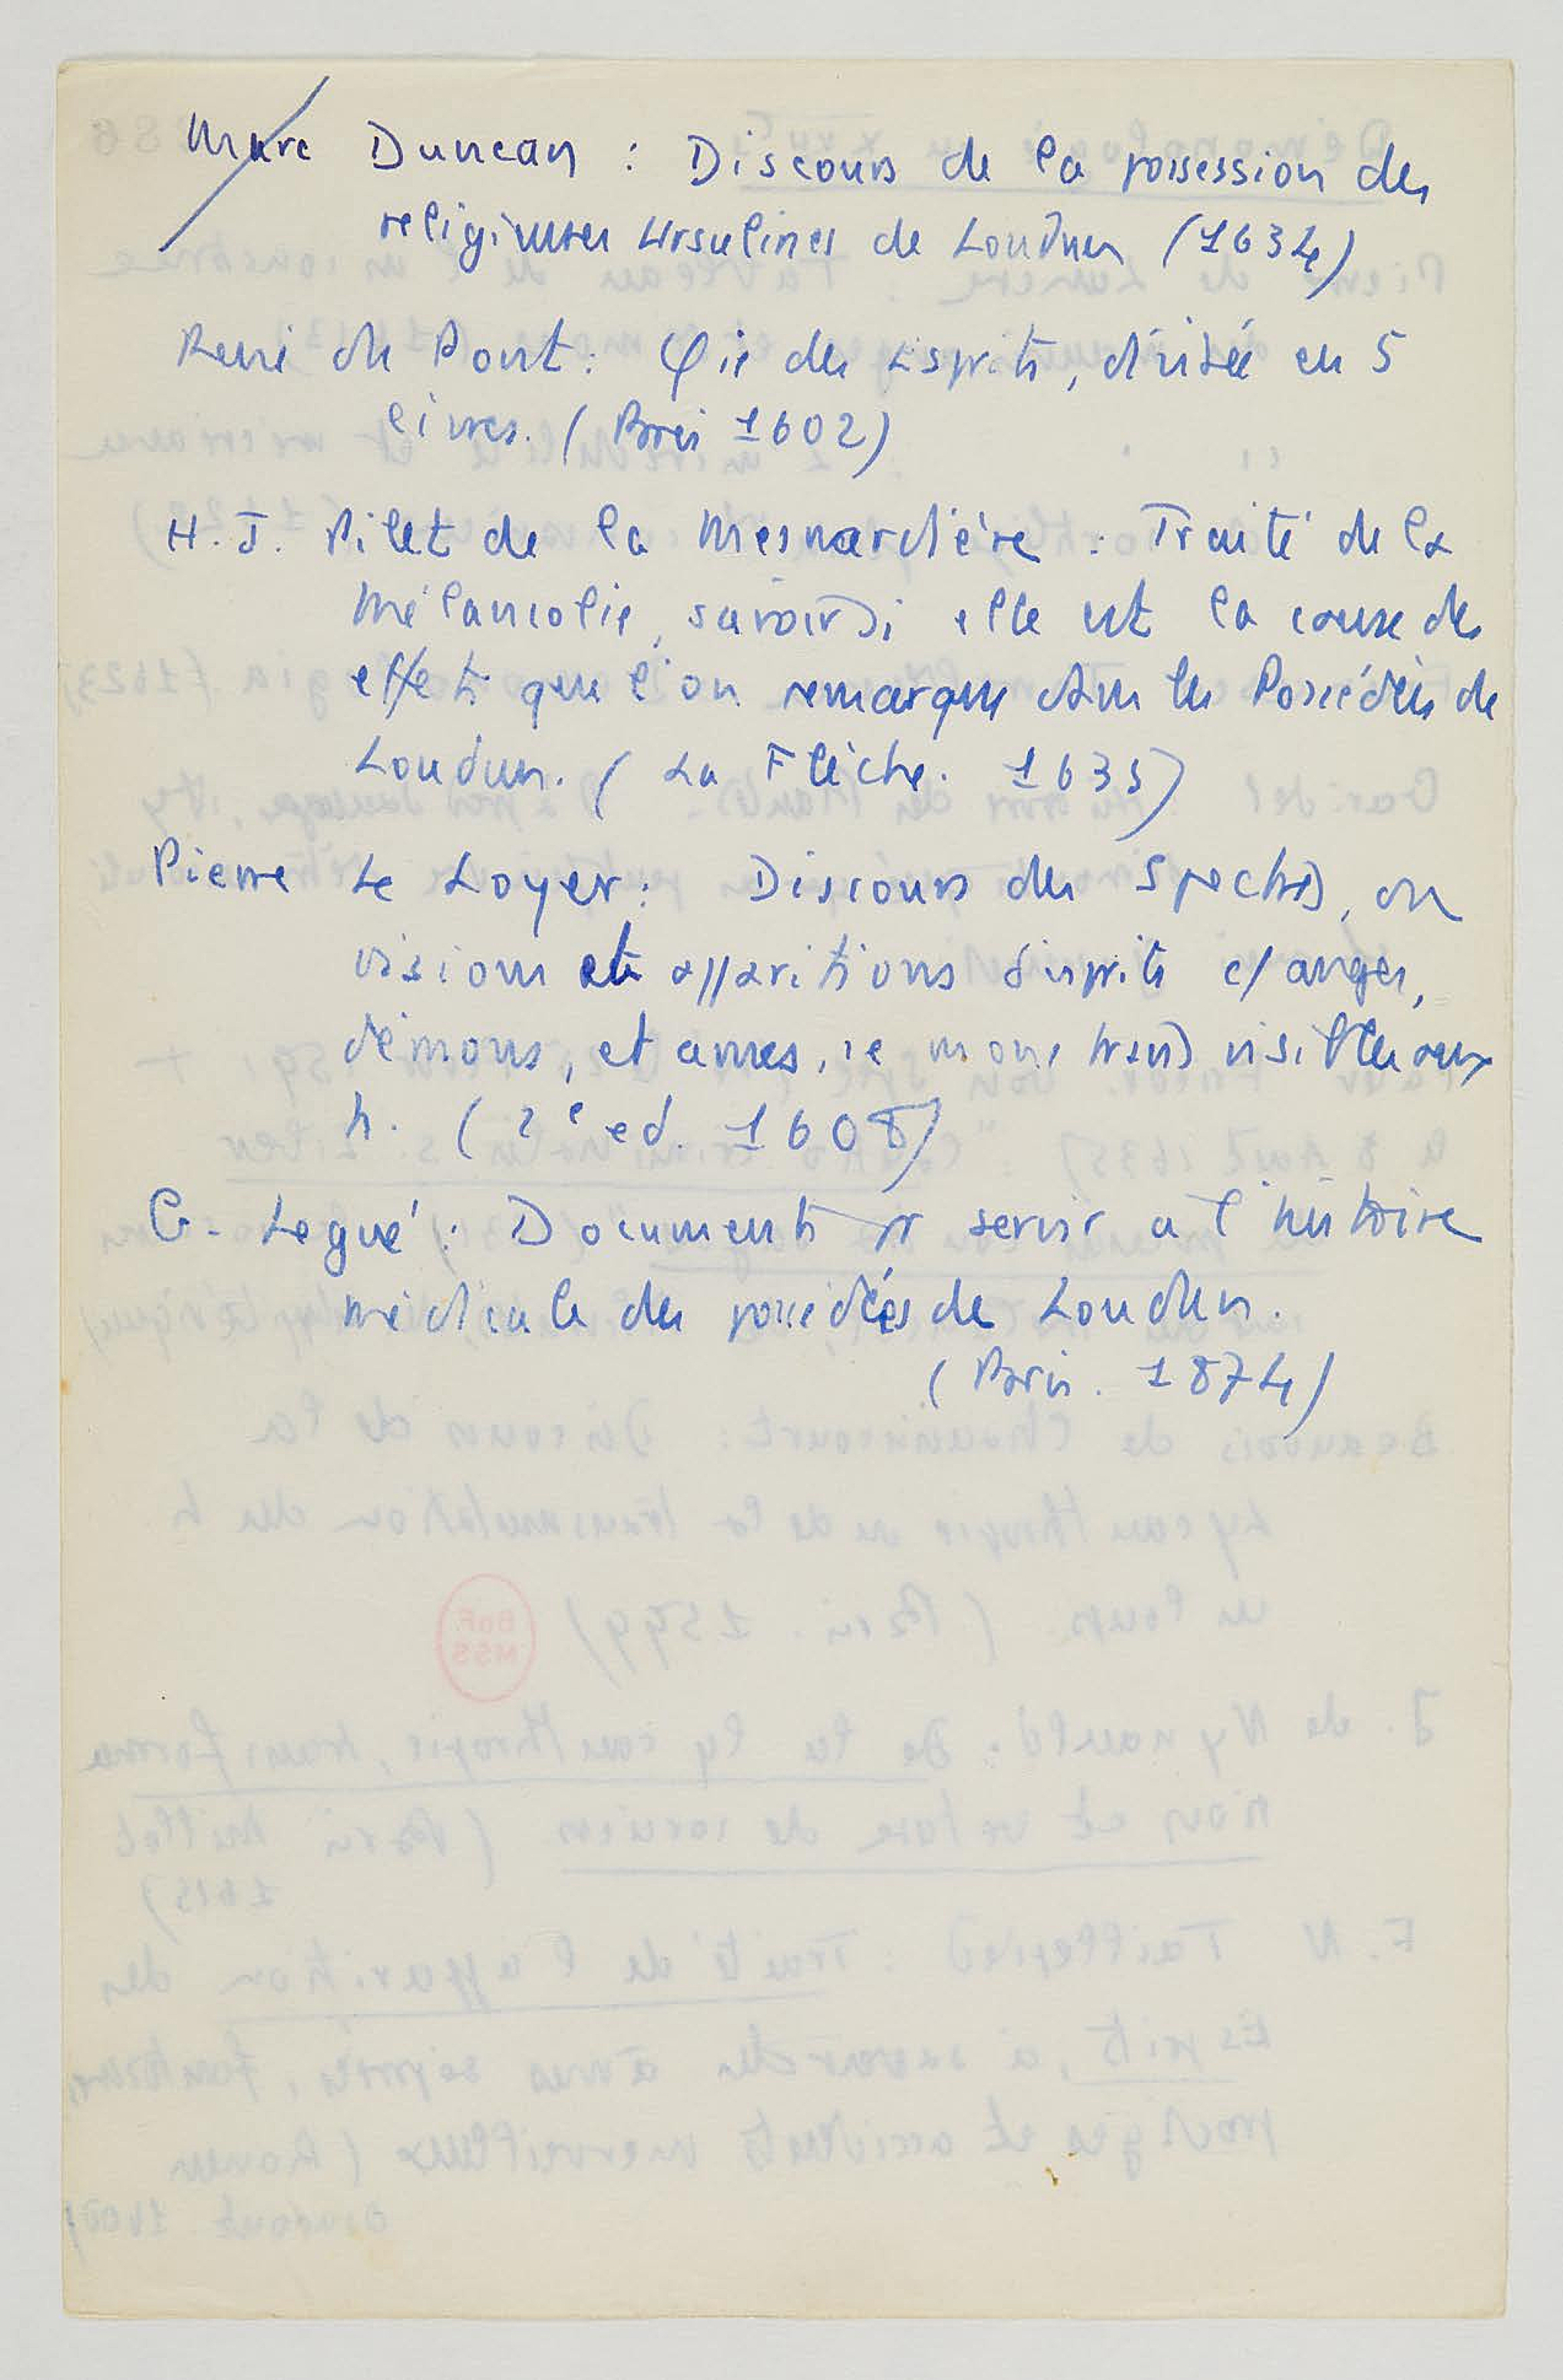 Marc Duncan : Discours de la possession des
religieuses Ursulines de Loudun (1634)
René du Pont : φie des Esprits, divisée en 5
livres. (Paris 1602)
H. J. Pilet de la Mesnardière : Traité de la
Mélancolie, savoir si elle est la cause des
effets que l'on remarque dans les Possédées de
Loudun. (La Flèche. 1635)
Pierre Le Loyer : Discours des Spectres, ou
visions et apparitions d'esprits c/ anges,
démons, et ames, se montrans visibles aux
h. (2e ed. 1608)
G. Legué : Documents pr servir a l'histoire
médicale des possédées de Loudun.
(Paris. 1874)